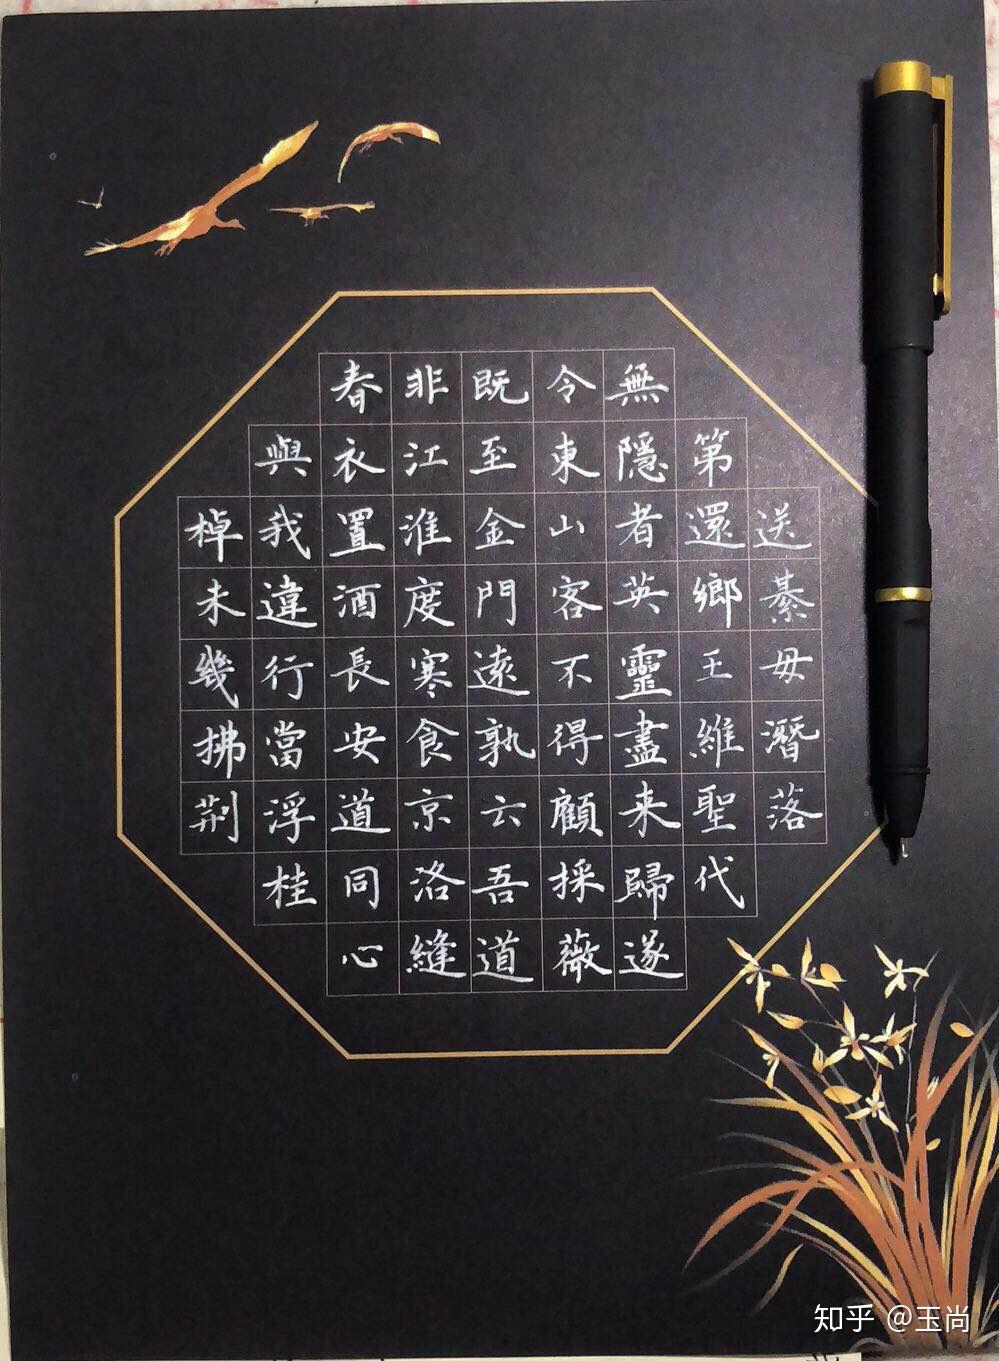 送綦毋潛落
第還鄉王維聖代
無隱者英靈盡来歸遂
令東山客不得顧採薇
既至金門遠孰云吾道
非江淮度寒食京洛縫
春衣置酒長安道同心
與我違行當浮桂
棹未幾拂荆
知乎 @玉尚